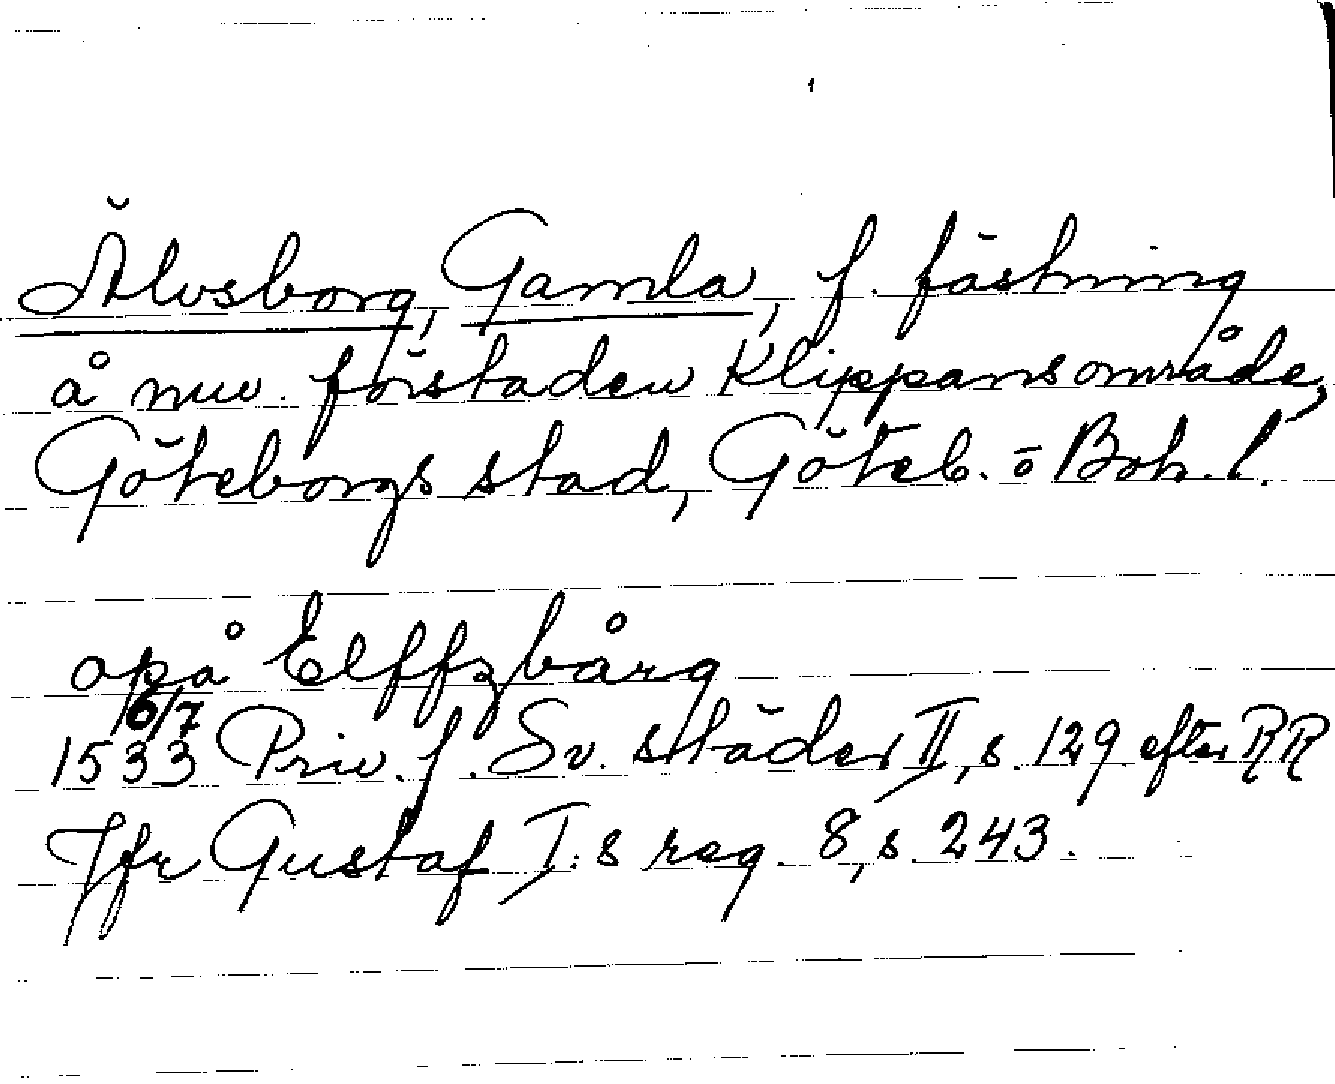 Älvsborg, Gamla, f. fästning
å nuv. förstaden Klippansområde,
Göteborgs stad, Göteb. o Boh. l.
opå Elffzbårg
16/7
1533 Priv. f. Sv. städer II, s. 129 efter RR
Jfr Gustaf I:s reg. 8, s. 243.